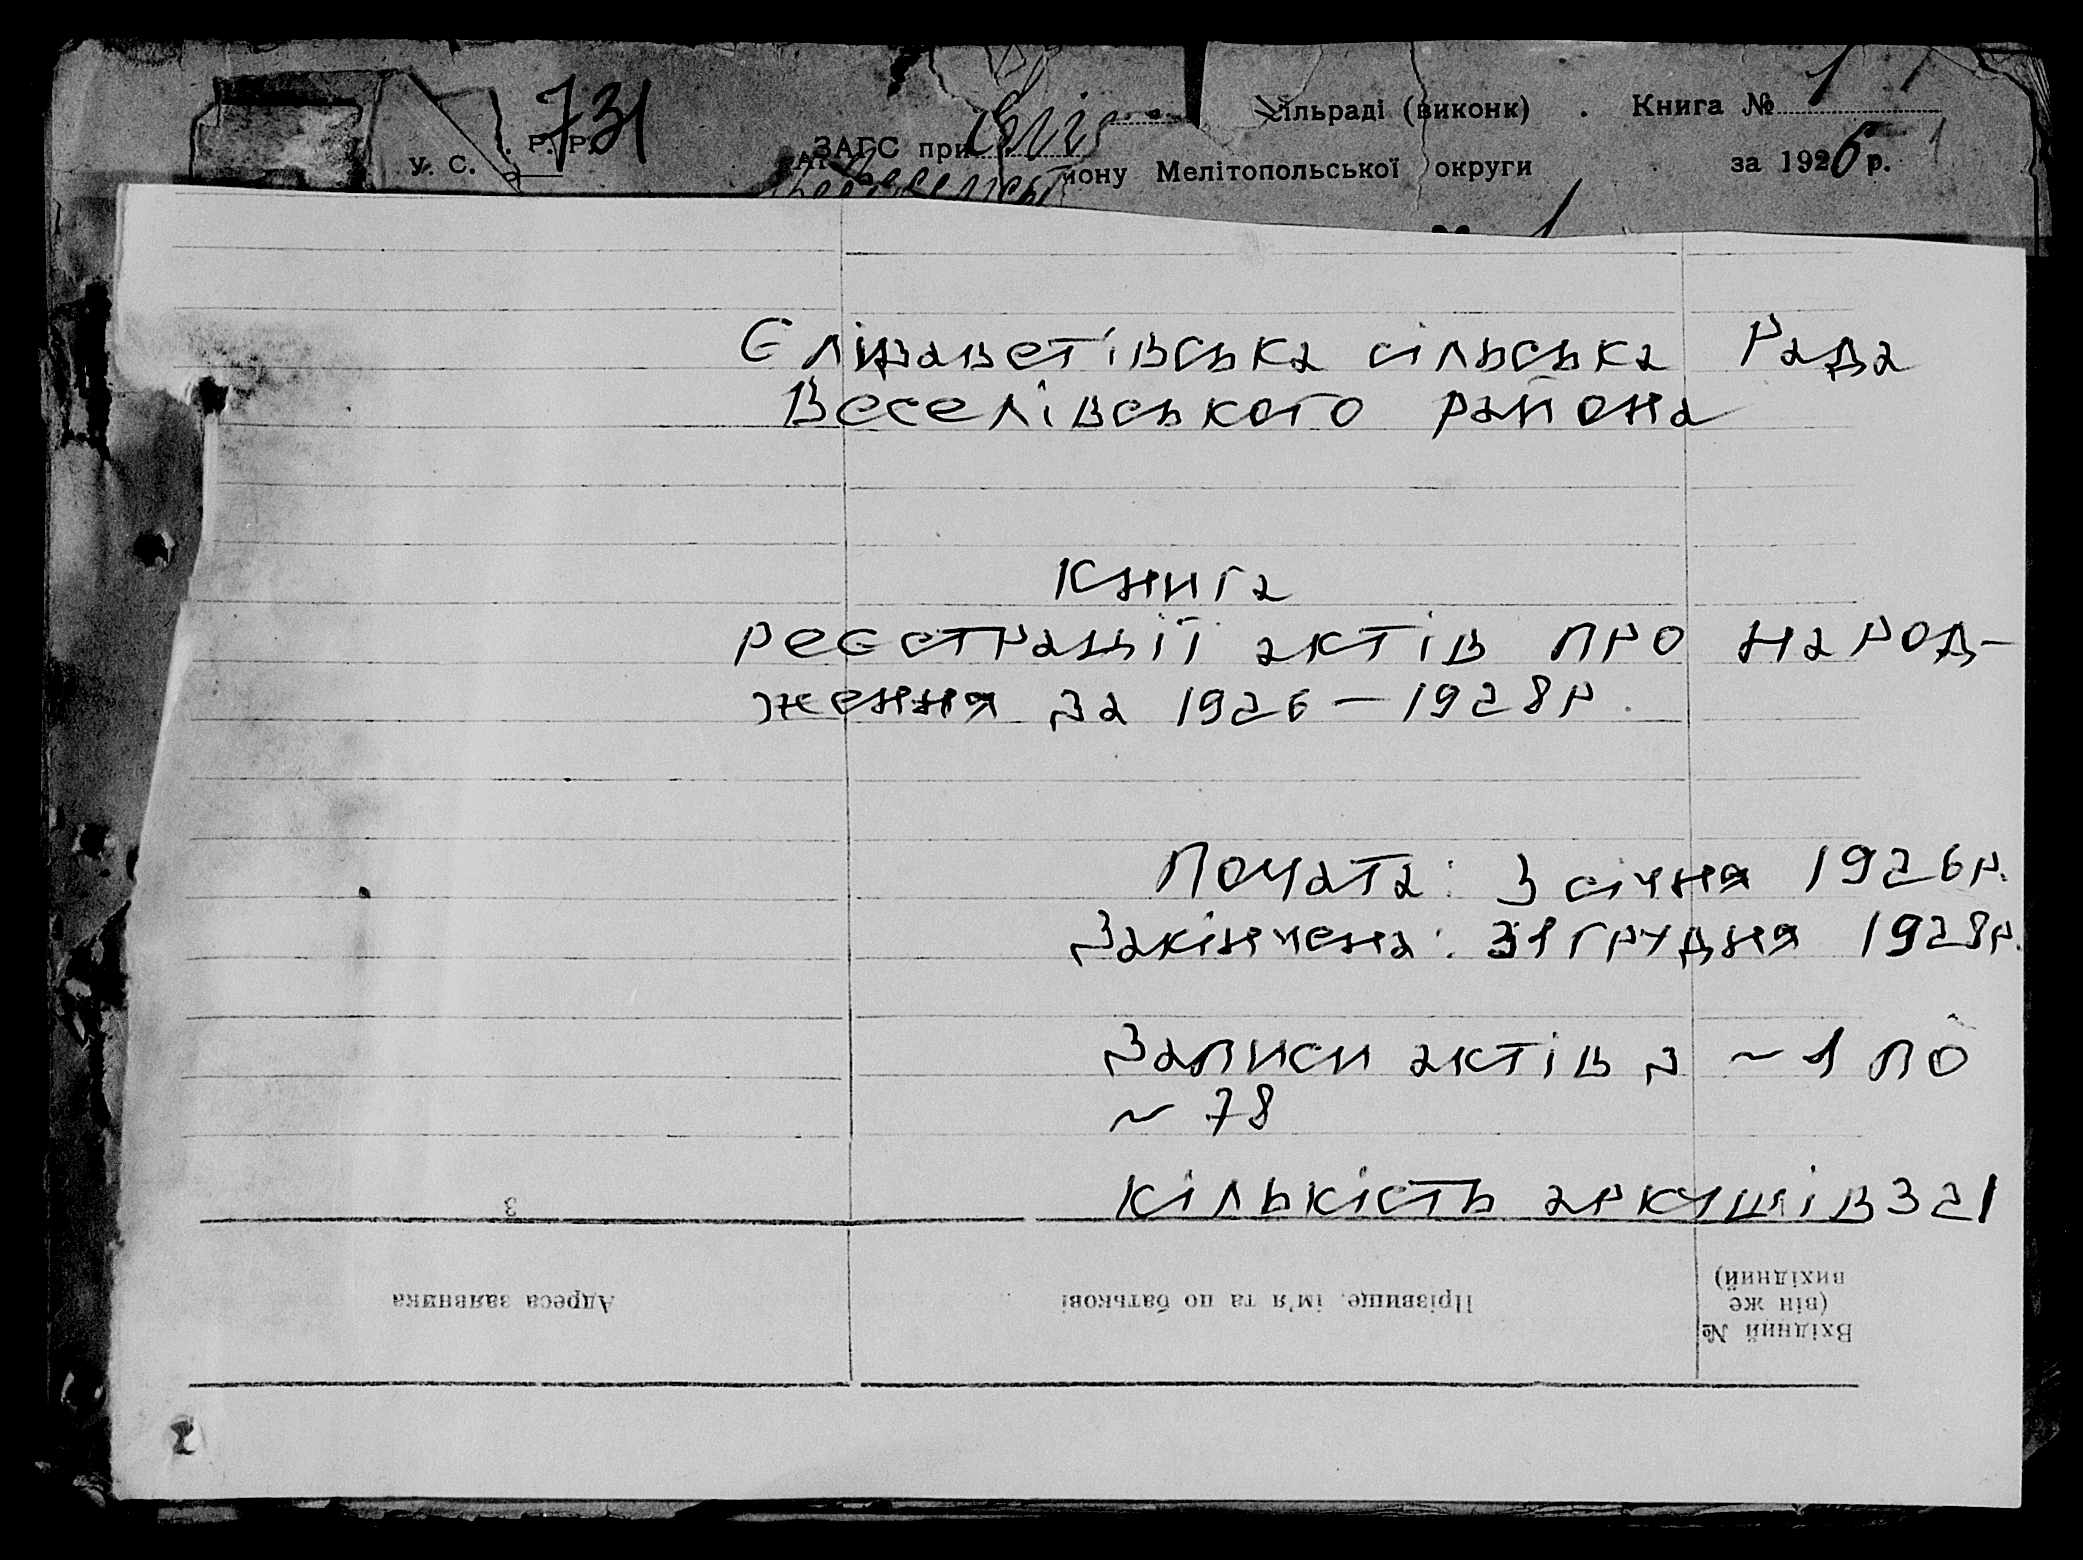 731
У. С. Р. Р.
ЗАГС при сільраді (виконк) . Книга № 1
йону Мелітопольської округи за 1926 р.
Єлізаветівська сільська Рада
Веселівського района
Книга
реєстрації актів про народ-
ження за 1926 – 1928р.
Почата: 3 січня 1926р.
Закінчена: 31 грудня 1928р.
Записи актів з ~ 1 по
~ 78
кількість аркушів 321
3
Адреса заявника
Прізвище, ім'я та по батькові
Вхідний №
(він же
вихідний)